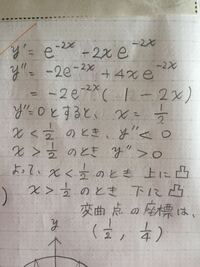 y' = e^{-2x} - 2xe^{-2x}
y'' = -2e^{-2x} + 4xe^{-2x}
= -2e^{-2x}(1-2x)
y''=0とすると、x = 1/2
x < 1/2 のとき、y'' < 0
x > 1/2 のとき y'' > 0
よって、x < 1/2 のとき 上に凸
) x > 1/2 のとき 下に凸
変曲点の座標は、
y (1/2, 1/4)